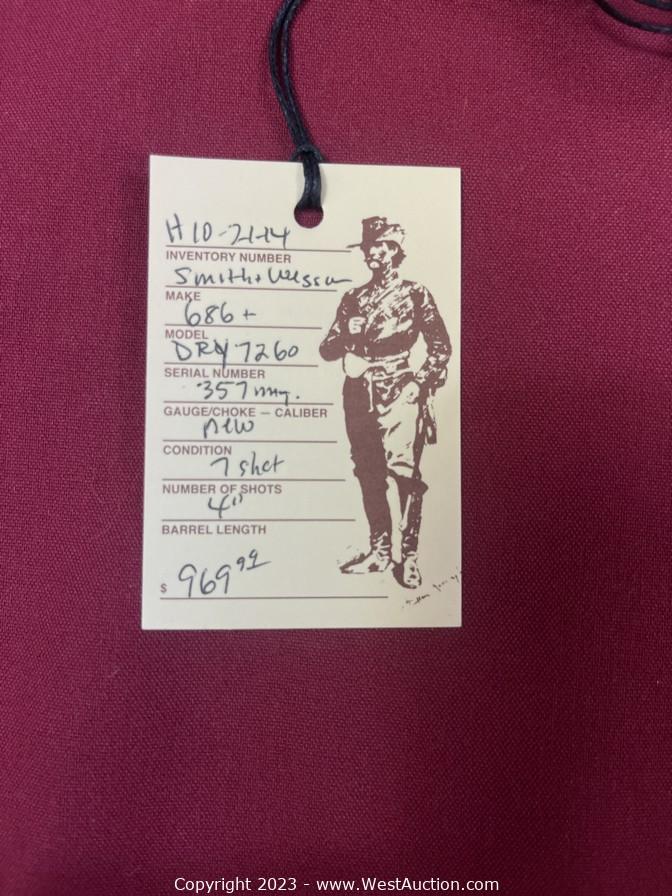 H10-21-14
INVENTORY NUMBER
Smith + Wesson
MAKE
686+
MODEL
DRY7260
SERIAL NUMBER
357 mag.
GAUGE/CHOKE — CALIBER
new
CONDITION
7 shot
NUMBER OF SHOTS
4"
BARREL LENGTH
$ 969 99
Copyright 2023 - www.WestAuction.com